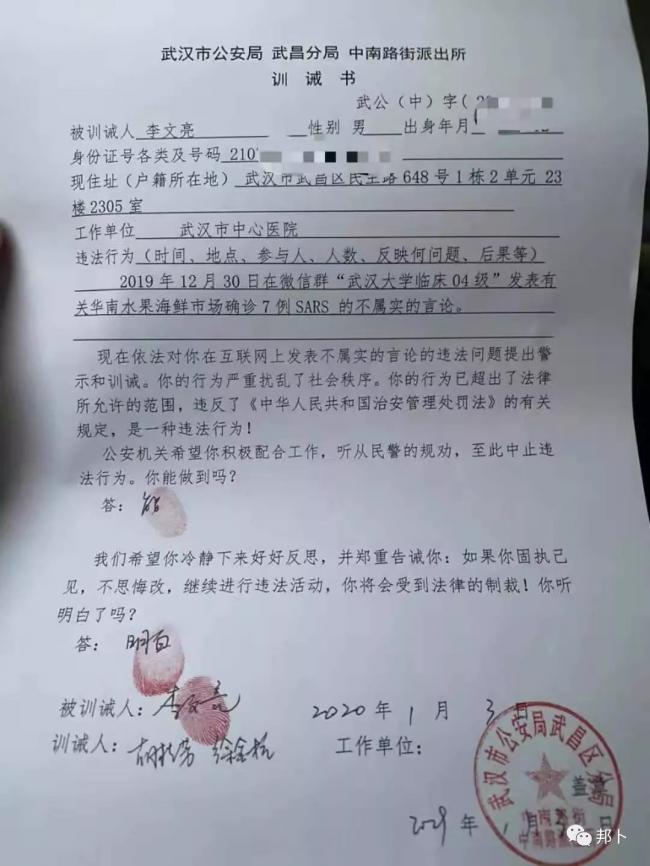 武汉市公安局 武昌分局 中南路街派出所
训 诫 书
武公（中）字（
被训诫人 李文亮 性别 男 出身年月
身份证号各类及号码 210
现住址（户籍所在地） 武汉市武昌区民主路 648 号 1 栋 2 单元 23
楼 2305 室
工作单位 武汉市中心医院
违法行为（时间、地点、参与人、人数、反映何问题、后果等）
2019 年 12 月 30 日在微信群“武汉大学临床 04 级”发表有
关华南水果海鲜市场确诊 7 例 SARS 的不属实的言论。
现在依法对你在互联网上发表不属实的言论的违法问题提出警
示和训诫。你的行为严重扰乱了社会秩序。你的行为已超出了法律
所允许的范围，违反了《中华人民共和国治安管理处罚法》的有关
规定，是一种违法行为！
公安机关希望你积极配合工作，听从民警的规劝，至此中止违
法行为。你能做到吗？
答： 能
我们希望你冷静下来好好反思，并郑重告诫你：如果你固执己
见，不思悔改，继续进行违法活动，你将会受到法律的制裁！你听
明白了吗？
答： 明白
被训诫人： 李文亮 2020 年 1 月 3 日
训诫人： 工作单位：
武汉市公安局武昌区分局
盖章
中南路街
中南路派出所
年 1 月 日
邦卜